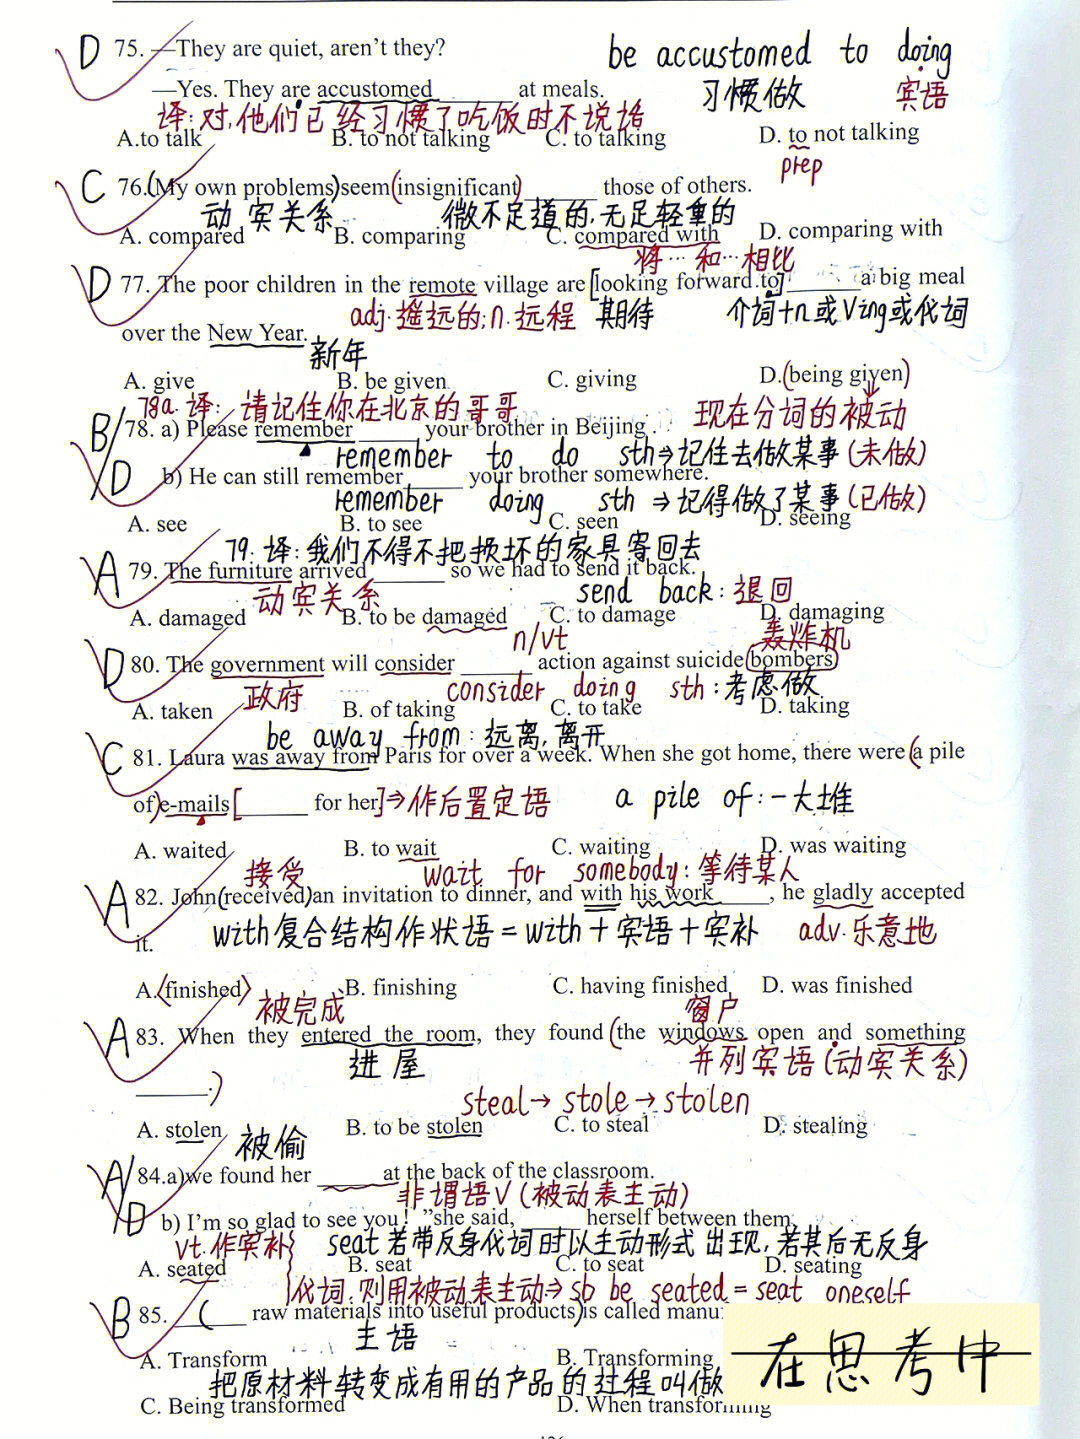 D 75. —They are quiet, aren't they?
be accustomed to doing
—Yes. They are accustomed ______ at meals.
习惯做 宾语
译:对,他们已经习惯了吃饭时不说话
A.to talk B. to not talking C. to talking D. to not talking
prep
C 76.(My own problems)seem(insignificant)______ those of others.
动宾关系 微不足道的,无足轻重的
A. compared B. comparing C. compared with D. comparing with
将…和…相比
D 77. The poor children in the remote village are [looking forward to]______a big meal
adj.遥远的;n.远程 期待 介词+n或Ving或代词
over the New Year.
新年
A. give B. be given C. giving D.(being given)
78a.译:请记住你在北京的哥哥 现在分词的被动
B/D 78. a) Please remember ______ your brother in Beijing .
remember to do sth⇒记住去做某事(未做)
b) He can still remember ______ your brother somewhere.
remember doing sth ⇒记得做了某事(已做)
A. see B. to see C. seen D. seeing
79.译:我们不得不把损坏的家具寄回去
A 79. The furniture arrived ______ so we had to send it back.
动宾关系 send back:退回
A. damaged B. to be damaged C. to damage D. damaging
n/vt 轰炸机
D 80. The government will consider ______ action against suicide(bombers)
政府 consider doing sth:考虑做
A. taken B. of taking C. to take D. taking
be away from:远离,离开
C 81. Laura was away from Paris for over a week. When she got home, there were (a pile
of)e-mails [______ for her]⇒作后置定语 a pile of:一大堆
A. waited B. to wait C. waiting D. was waiting
接受 wait for somebody:等待某人
A 82. John(received)an invitation to dinner, and with his work ______, he gladly accepted
it. with复合结构作状语=with+宾语+宾补 adv.乐意地
A.(finished) B. finishing C. having finished D. was finished
被完成 窗户
A 83. When they entered the room, they found (the windows open and something
进屋 并列宾语(动宾关系)
______.)
steal→stole→stolen
A. stolen B. to be stolen C. to steal D. stealing
被偷
A/D 84.a)we found her ______ at the back of the classroom.
非谓语V(被动表主动)
b) I'm so glad to see you! "she said, ______ herself between them.
vt.作宾补 seat若带反身代词时以主动形式出现,若其后无反身
A. seated B. seat C. to seat D. seating
代词,则用被动表主动⇒sb be seated=seat oneself
B 85. ______( raw materials into useful products)is called manu
主语
A. Transform B. Transforming
把原材料转变成有用的产品的过程叫做
C. Being transformed D. When transforming
在思考中